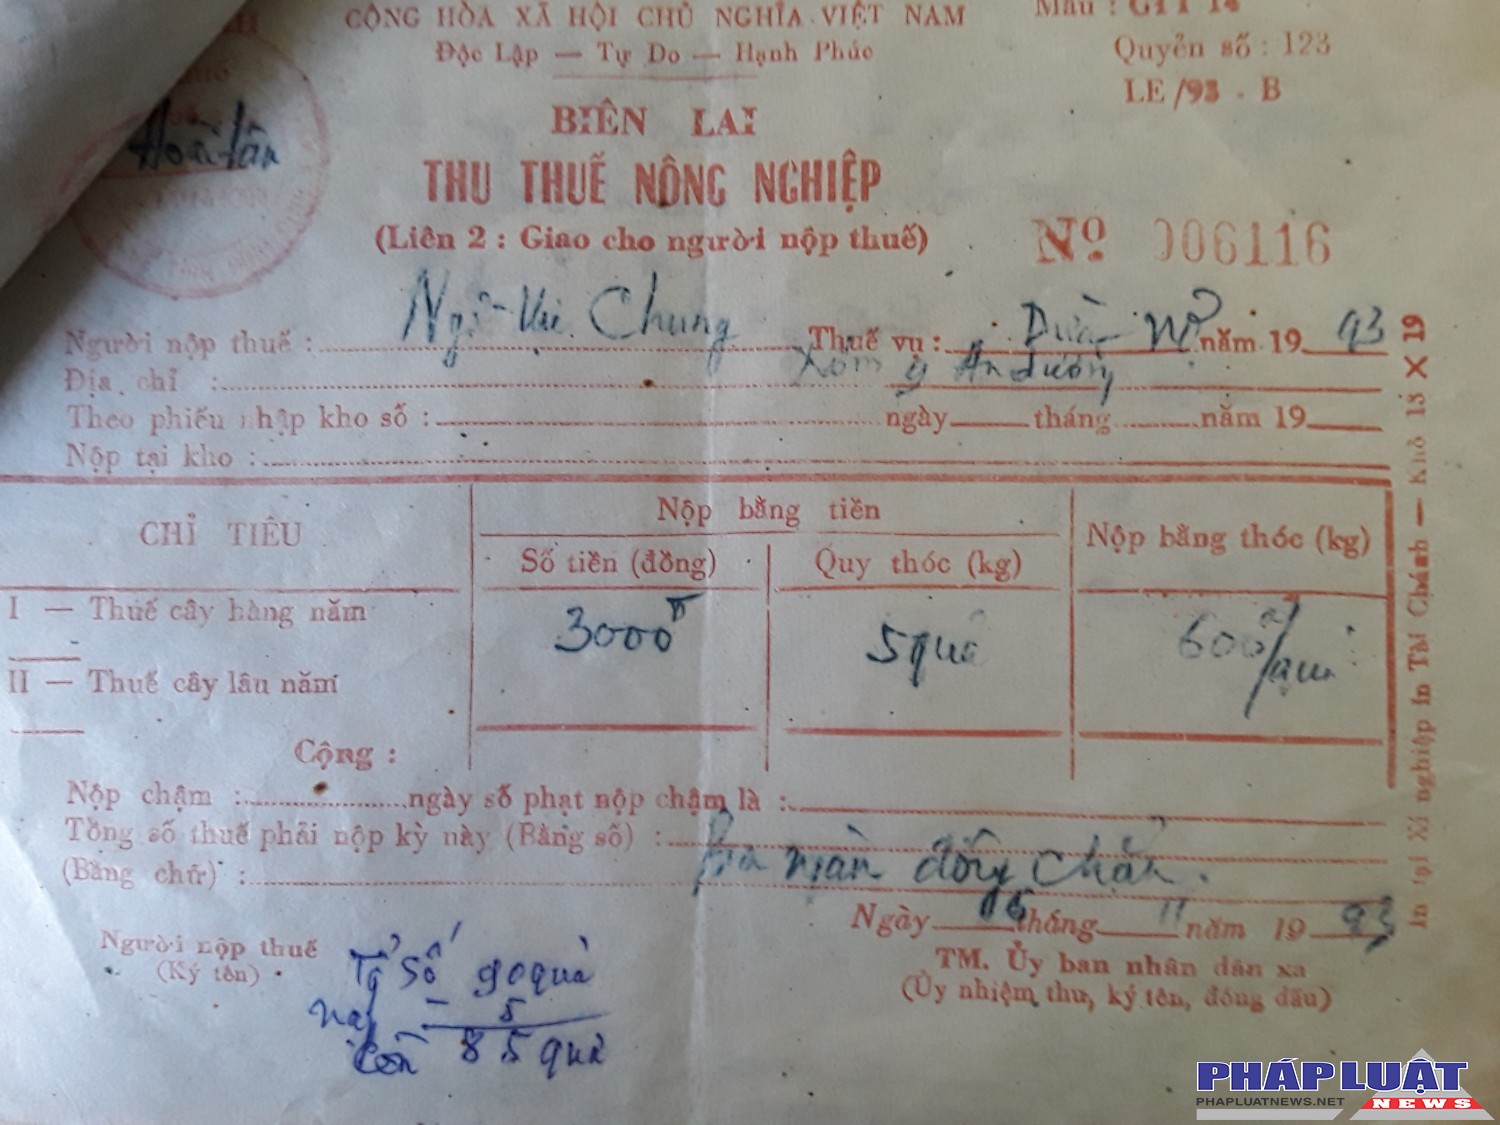 CỘNG HÒA XÃ HỘI CHỦ NGHĨA VIỆT NAM
Mẫu : GTT 14
Độc Lập — Tự Do — Hạnh Phúc
Quyển số : 123
LE /93 - B
BIÊN LAI
Hoài Tân
THU THUẾ NÔNG NGHIỆP
(Liên 2 : Giao cho người nộp thuế)
Nº 006116
Người nộp thuế : Ngô Vi Chung Thuế vụ : Dừa năm 19 93
Địa chỉ : Xóm 9 An dưỡng
Theo phiếu nhập kho số : ngày tháng năm 19
Nộp tại kho :
CHỈ TIÊU
Nộp bằng tiền
Nộp bằng thóc (kg)
Số tiền (đồng)
Quy thóc (kg)
I — Thuế cây hàng năm
3000đ
5 quả
600đ/quả
II — Thuế cây lâu năm
Cộng :
Nộp chậm : ngày số phạt nộp chậm là :
Tổng số thuế phải nộp kỳ này (Bằng số) :
(Bằng chữ) : Ba ngàn đồng chẵn.
Ngày 16 tháng 11 năm 19 93
Người nộp thuế
(Ký tên)
TM. Ủy ban nhân dân xã
(Ủy nhiệm thư, ký tên, đóng dấu)
số 90 quả
- 5
Còn 85 quả
In tại Xí nghiệp in Tài Chánh — Khổ 13 X 19
PHÁP LUẬT
PHAPLUATNEWS.NET
NEWS